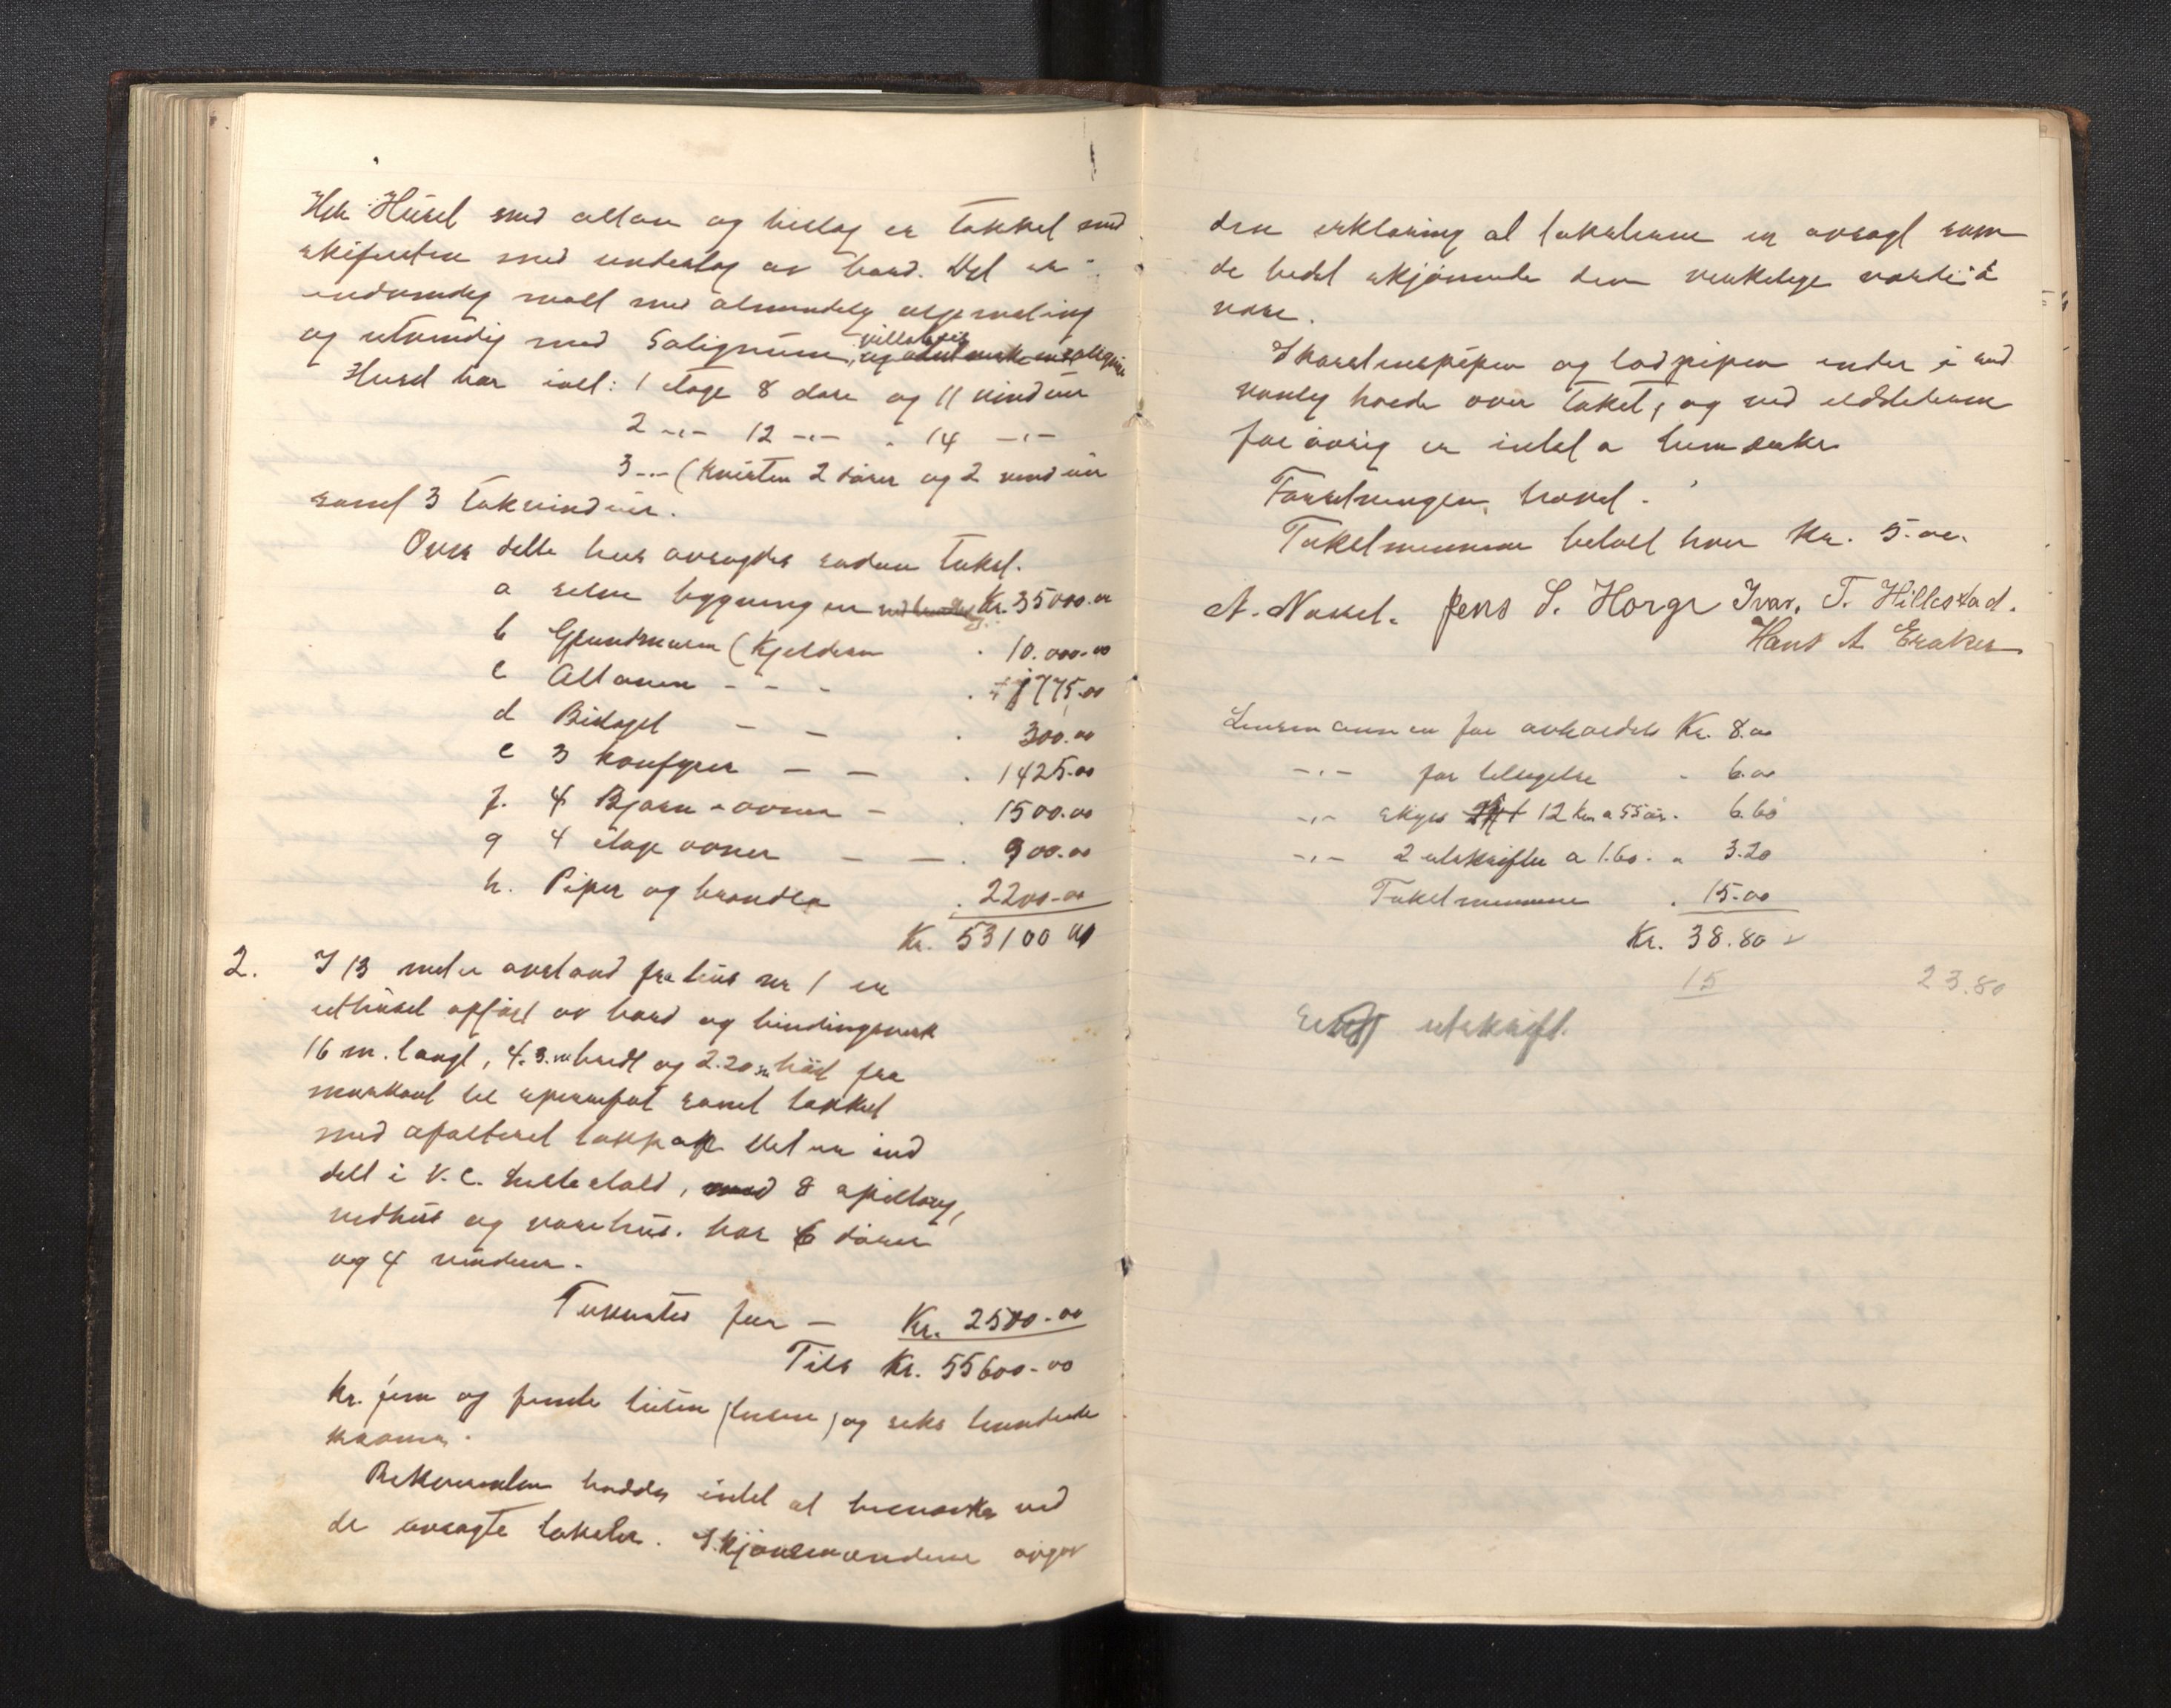 Huset med altan og bislag er tækket med
skifersten med underlag av bord. Det er
indvendig malt med almindelig oljemaling
og utvendig med Solignum,
Huset har ialt: 1 etage 8 døre og 11 vinduer
2 -"- 12 -"- " 14 -"-
3 -"- (kvisten 2 dører og 2 vinduer
samt 3 takvinduer.
Over dette hus avsagdes sådan takst.
a selve bygningen Kr. 35000.00
b Grundmuren (kjelderen " 10.000-00
c Altanen - - - " 1775.00
d Bislaget - - " 300.00
e 3 komfyrer - - " 1425.00
f. 4 Bjørn-ovner - " 1500.00
g 4 etage ovner - - " 900.00
h. Piper og brandm " 2200-00
Kr. 53100 00
2. I 13 meter avstand fra hus nr 1 er
uthuset opført av bord og bindingsverk
16 m. langt, 4.3. m bredt og 2.20 m høit fra
murkant til sperrefot samt tækket
med asfalteret takpap. Det er ind
delt i V.C. hestestald, med 8 spiltoug,
vedhus og varehus. har 6 dører
og 4 vinduer.
Taksertes for - Kr. 2500-00
Tils Kr. 55600-00
kr. fem og femti tusen (tusen) og seks hundrede
kroner.
Rekvirenten hadde intet at bemerke ved
de avsagte takster. Skjønsmændene avgav
den erklæring at taksterne er avsagt som
de bedst skjønnede den virkelige værdi å
være.
Skorstenspipen og lodpipen ender i sed
vanlig høide over taket, og ved ildstederne
for øvrig er intet a bemærke
Forretningen hævet.
Takstmennene betalt hver Kr. 5.00.
A. Nakel. Jens S. Horge Ivar. T. Hillestad.
Hans A Eraker
Lensmannen for avholdels Kr. 8.00
-"- for tillysgelse " 6.00
-"- skyss 12 km a 55 ør. " 6.60
-"- 2 utskrifter a 1.60. " 3.20
Takstmennene " 15.00
Kr. 38.80
15 23.80
utskrift.